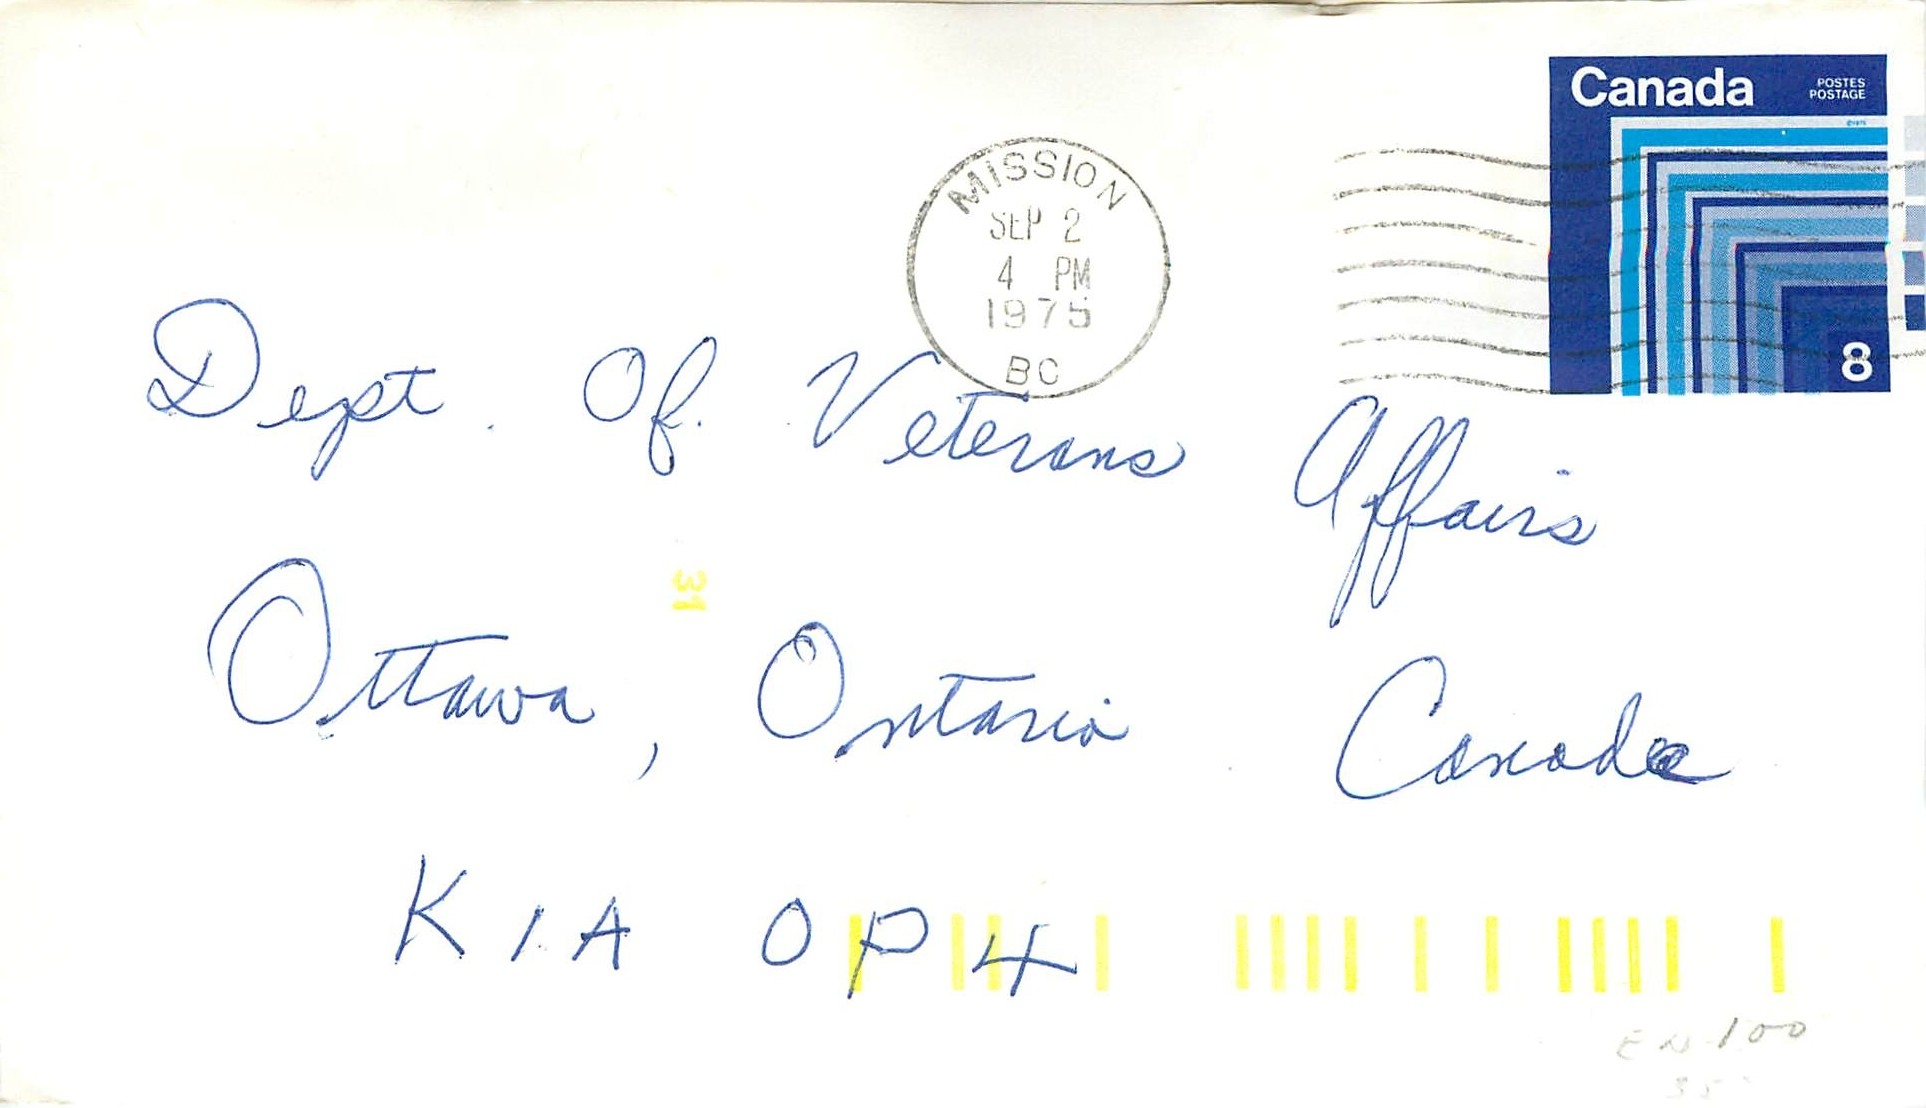 Canada
POSTES
POSTAGE
8
MISSION
SEP 2
4 PM
1975
BC
Dept. Of. Veterans Affairs
31
Ottawa, Ontario Canada
K1A OP4
EN 100